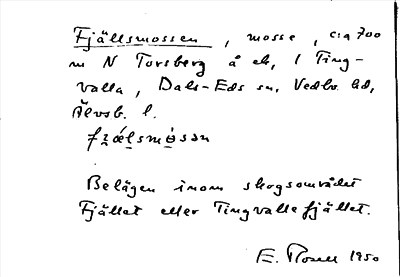 Fjällsmossen, mosse, c:a 700
m N Torsberg å ek, i Ting-
valla, Dals-Eds sn, Vedbo hd,
Älvsb. l.
Belägen inom skogsområdet
Fjället eller Tingvallafjället.
E. 1950